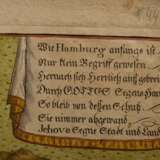 Wie Hamburg anfangs ist
Nur klein Begriff gewesen
Hernach sich Herrlich aufs gehob
Durch GOTTES Segens Han
So bleib von dessen Schutz
Sie nimmer abgewand,
Jehova Segne Stadt und Land